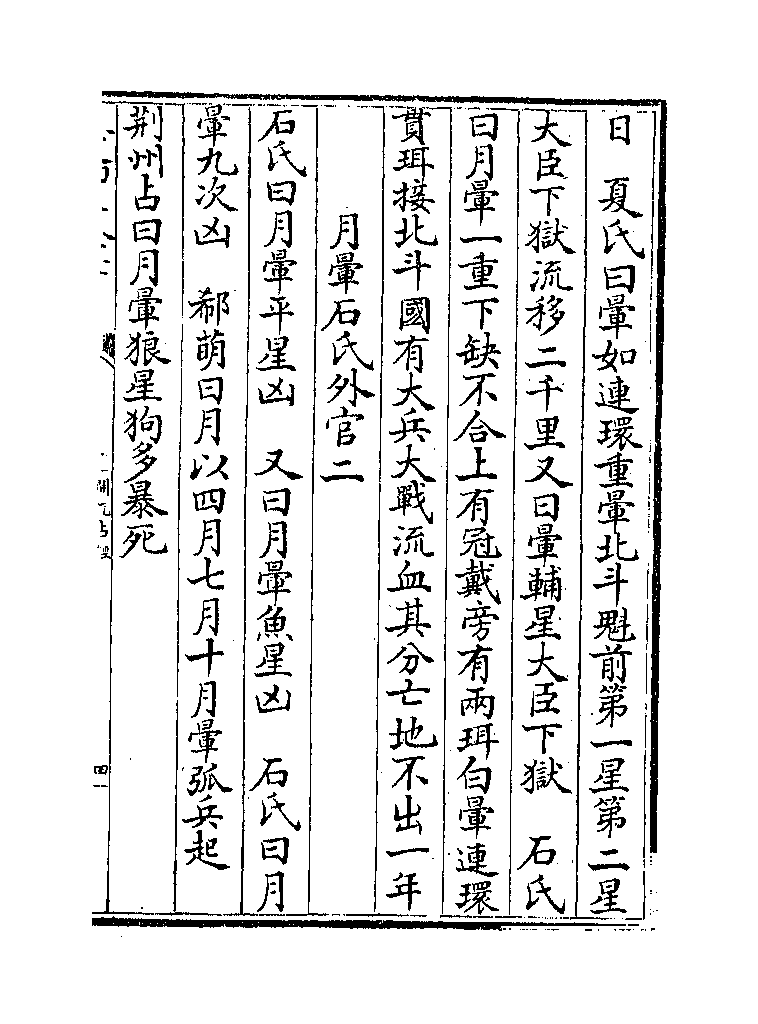 日　夏氏曰暈如連環重暈北斗魁前第一星第二星
大臣下獄流移二千里又曰暈輔星大臣下獄　石氏
曰月暈一重下缺不合上有冠戴旁有兩珥白暈連環
貫珥接北斗國有大兵大戰流血其分亡地不出一年
月暈石氏外官二
石氏曰月暈平星凶　又曰月暈魚星凶　石氏曰月
暈九次凶　郗萌曰月以四月七月十月暈弧兵起
荆州占曰月暈狼星狗多暴死